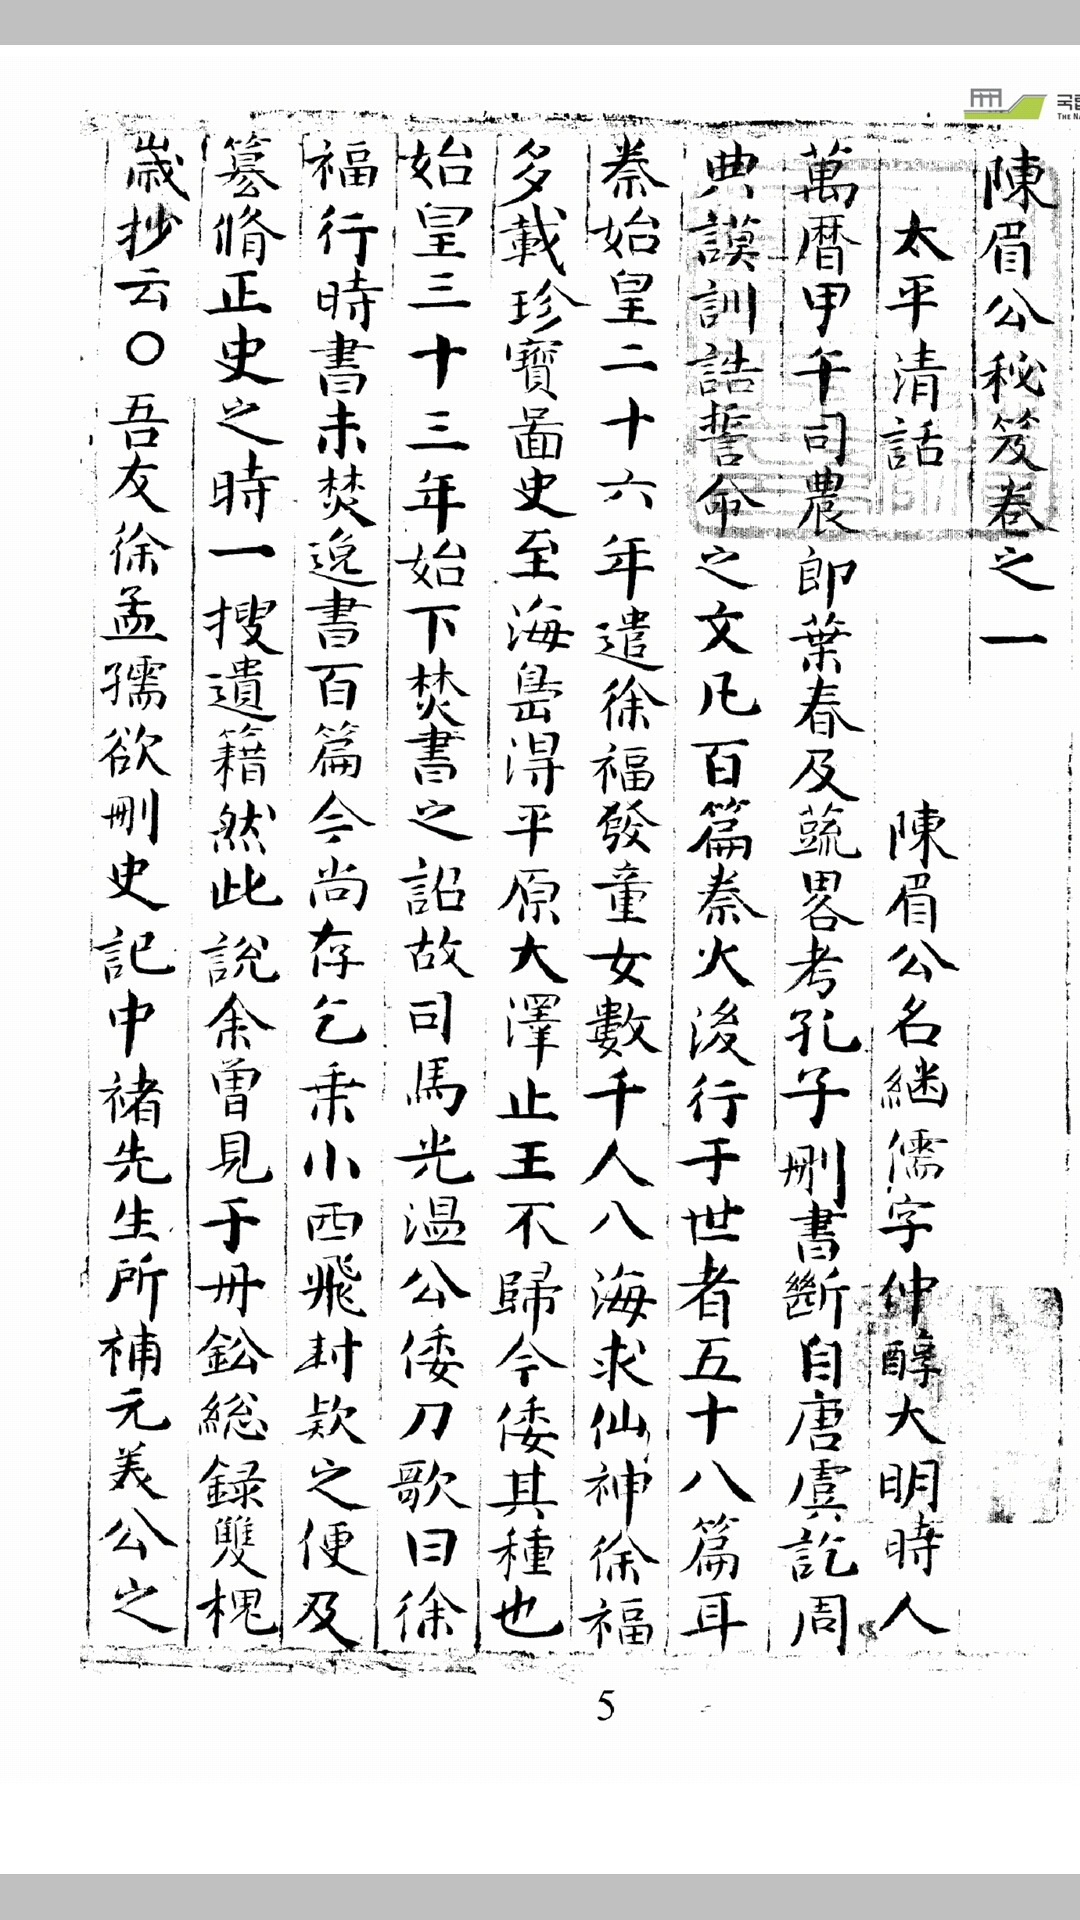 陳眉公秘笈卷之一
太平清話 陳眉公名継儒字仲醇大明時人
萬曆甲午司農郎葉春及蔬畧考孔子刪書斷自唐虞訖周
典謨訓誥誓命之文凡百篇秦火後行于世者五十八篇耳
秦始皇二十六年遣徐福發童女數千人入海求仙神徐福
多載珍寶啚史至海島得平原大澤止王不歸今倭其種也
始皇三十三年始下焚書之詔故司馬光温公倭刀歌曰徐
福行時書未焚逸書百篇今尚存乞乗小西飛封欵之便及
纂脩正史之時一搜遺籍然此說余曾見于丹鈆総録雙槐
歲抄云〇吾友徐孟孺欲刪史記中褚先生所補元美公之
5
国
THE NA